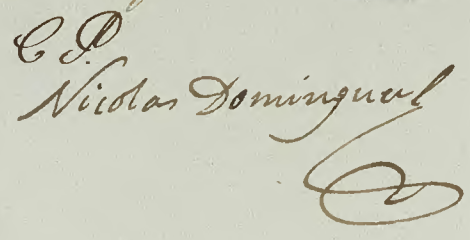 C. P.
Nicolas Dominguez